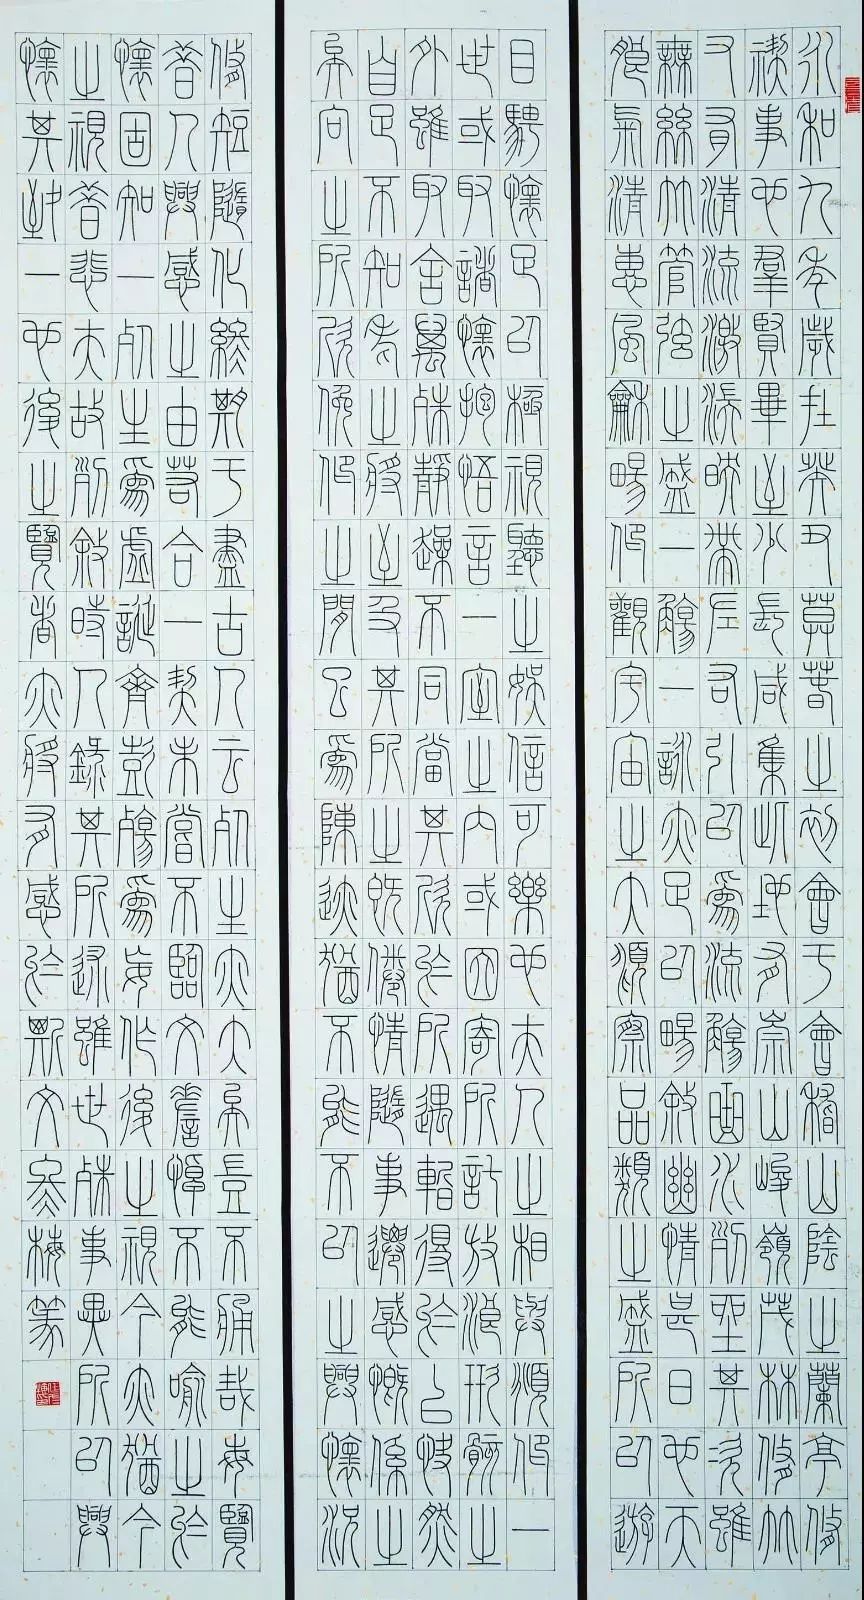 永和九年歲在癸丑莫春之初會于會稽山陰之蘭亭修
禊事也羣賢畢至少長咸集此地有崇山峻嶺茂林修竹
又有清流激湍映帶左右引以為流觴曲水列坐其次雖
無絲竹管弦之盛一觴一詠亦足以暢敘幽情是日也天
朗氣清惠風龢暢仰觀宇宙之大俯察品類之盛所以遊
目騁懷足以極視聽之娛信可樂也夫人之相與俯仰一
世或取諸懷抱悟言一室之內或因寄所託放浪形骸之
外雖取舍萬殊靜躁不同當其欣於所遇暫得於己快然
自足不知老之將至及其所之既倦情隨事遷感慨係之
矣向之所欣俛仰之間已為陳迹猶不能不以之興懷況
修短隨化終期于盡古人云死生亦大矣豈不痛哉每覽
昔人興感之由若合一契未嘗不臨文嗟悼不能喻之於
懷固知一死生為虛誕齊彭殤為妄作後之視今亦猶今
之視昔悲夫故列敘時人錄其所述雖世殊事異所以興
懷其致一也後之覽者亦將有感於斯文梅篆